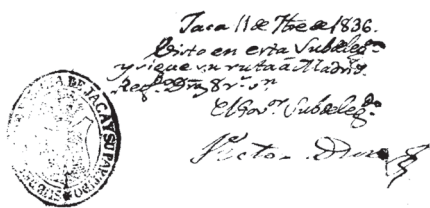 Jaca 11 de 7bre de 1836.
Visto en esta Subdeleg.on
y sigue su ruta á Madrid.
Reg.do 8 r.s vn
El Gov.or Subdeleg.do
Victor
DE JACA Y SU PARTIDO